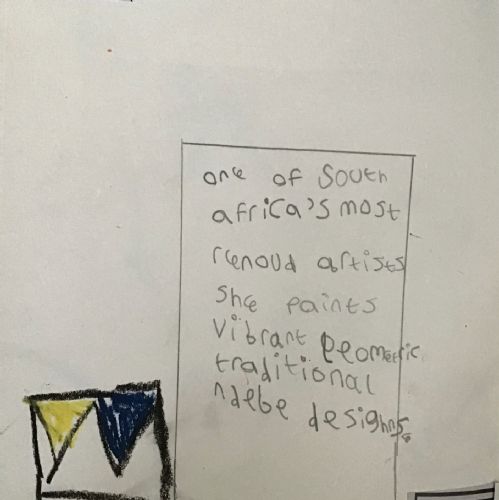 one of South
africa's most
renoud artists
She paints
vibrant geometric
traditional
ndebe designs